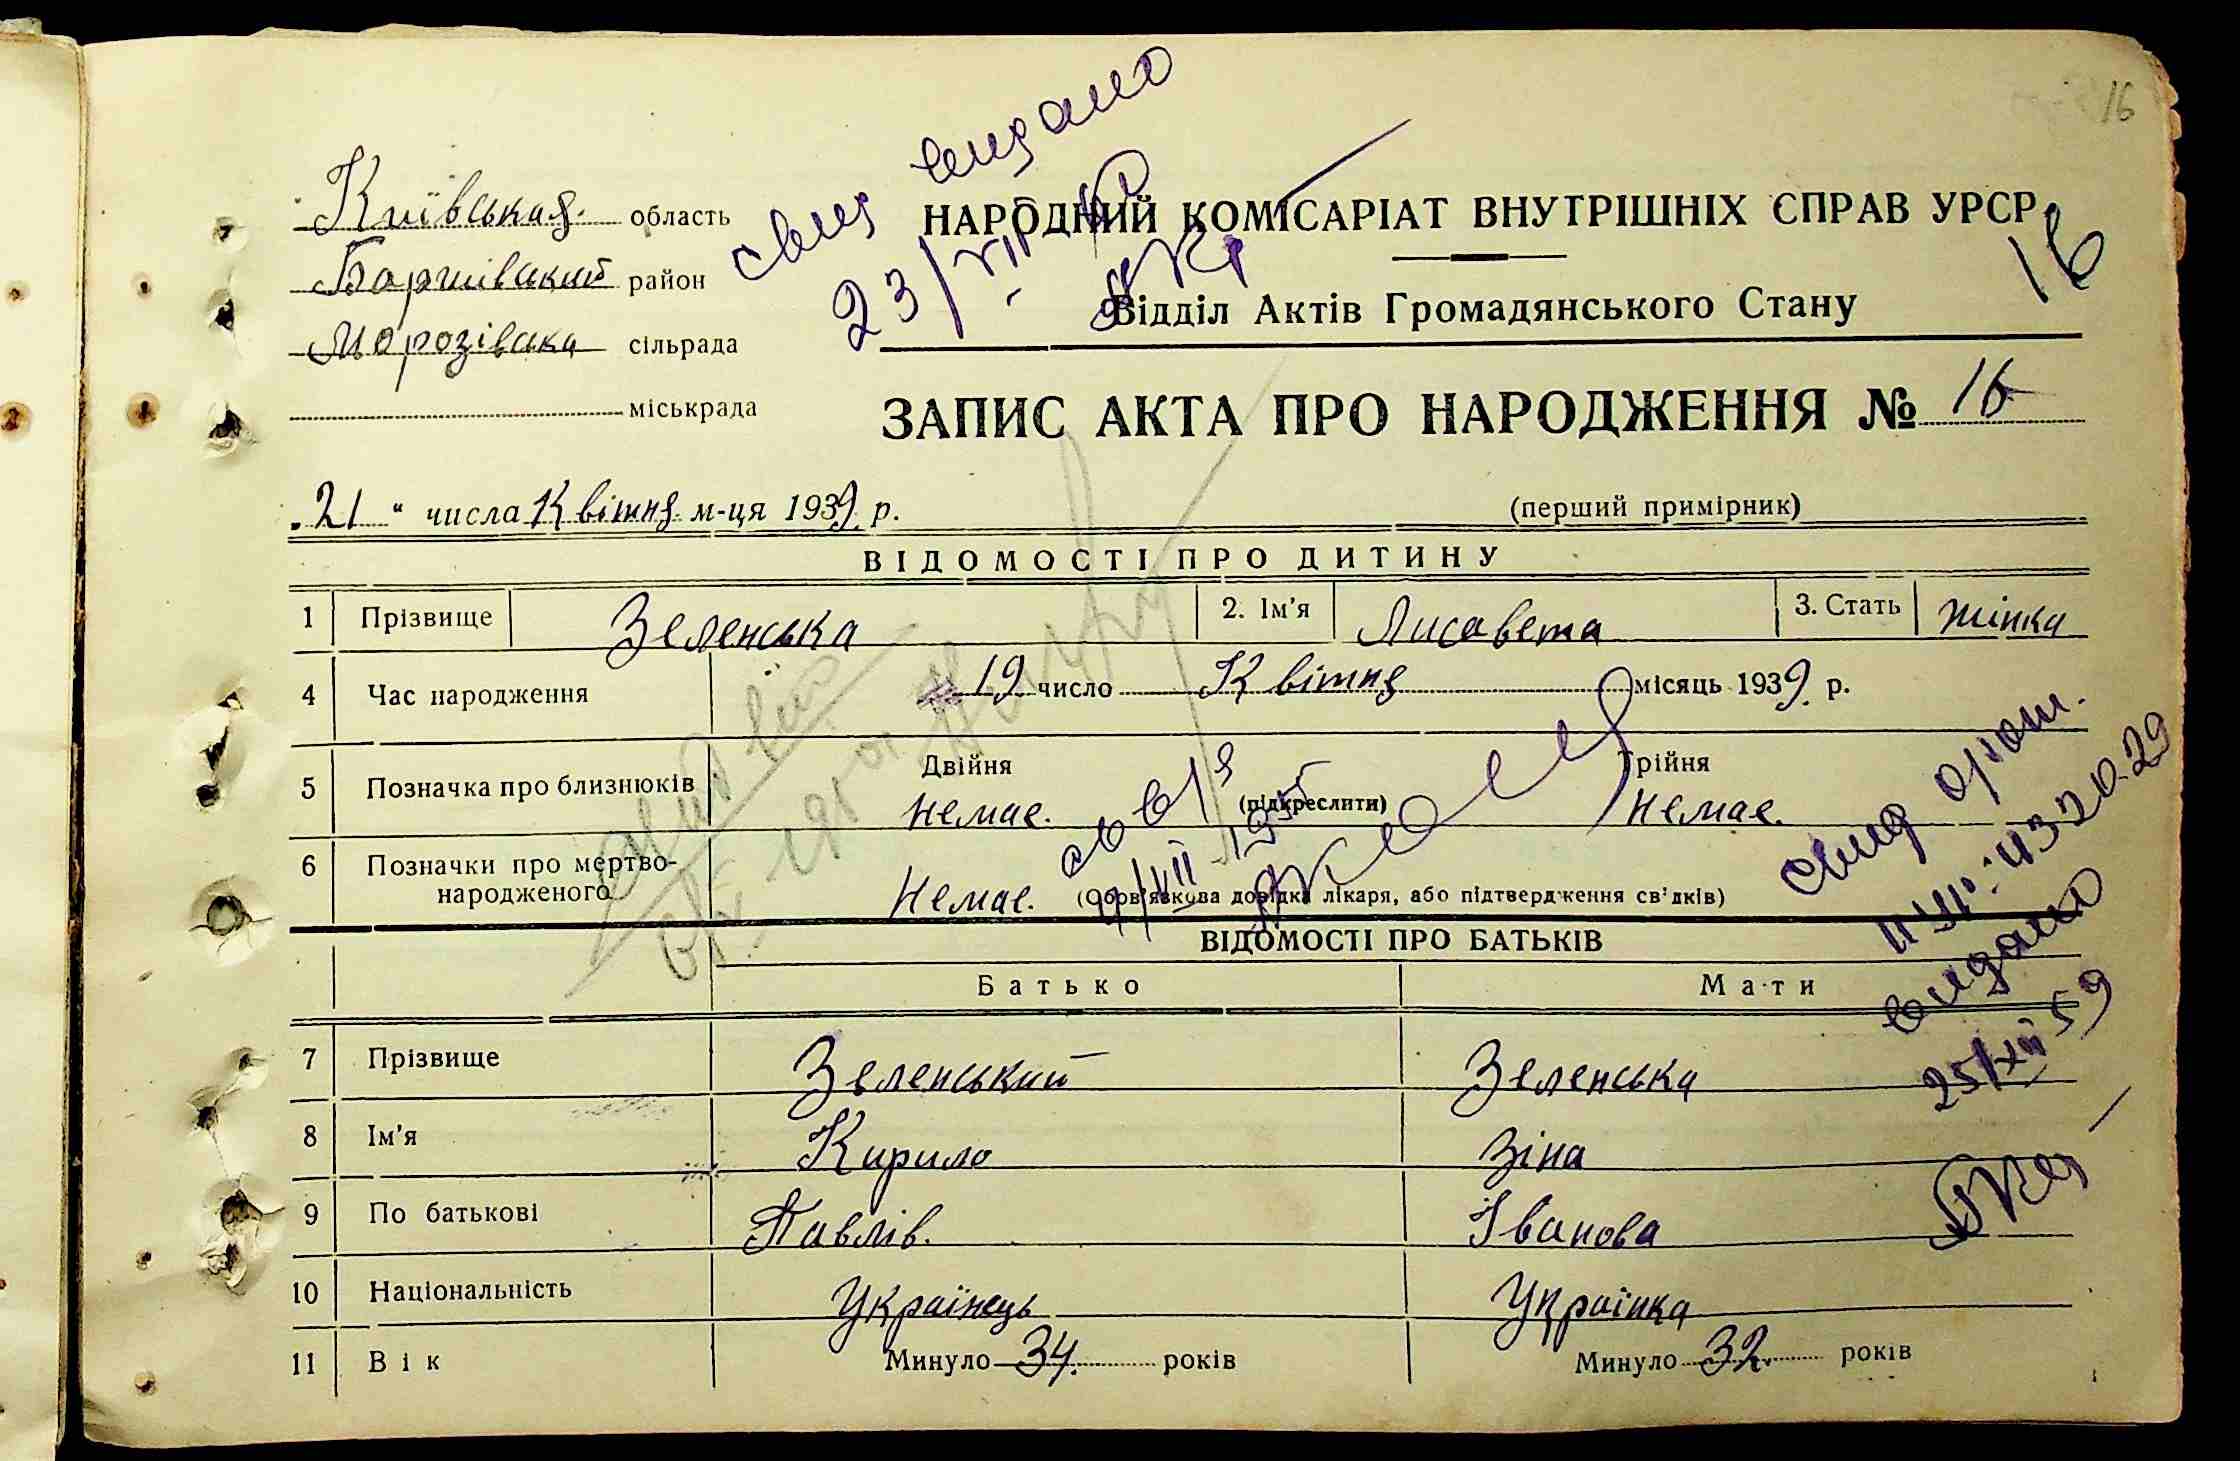 16
Київська область
НАРОДНИЙ КОМІСАРІАТ ВНУТРІШНІХ СПРАВ УРСР
район
Відділ Актів Громадянського Стану
16
Морозівська сільрада
міськрада
свид видано
23/VII
ЗАПИС АКТА ПРО НАРОДЖЕННЯ № 16
„21“ числа Квітня м-ця 1939 р.
(перший примірник)
ВІДОМОСТІ ПРО ДИТИНУ
1 Прізвище Зеленська 2. Ім'я Лисавета 3. Стать жінка
4 Час народження 19 число Квітня місяць 1939 р.
5 Позначка про близнюків Двійня Немає. (підкреслити) Трійня Немає.
6 Позначки про мертво-
народженого Немає. (Обов'язкова довідка лікаря, або підтвердження св'дків)
свид
видано
25/XII 59
ВІДОМОСТІ ПРО БАТЬКІВ
Батько Мати
7 Прізвище Зеленський Зеленська
8 Ім'я Кирило Зіна
9 По батькові Павлів. Іванова
10 Національність Українець Українка
11 Вік Минуло 34. років Минуло 32. років